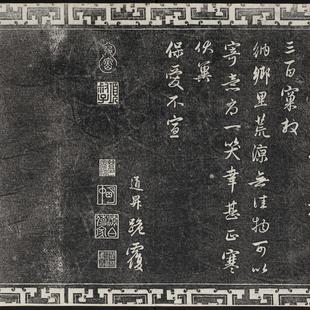 三百窠枚
納鄉里荒涼無佳物可以
寄意為一笑幸甚正寒
伏冀
保愛不宣
道昇跪覆